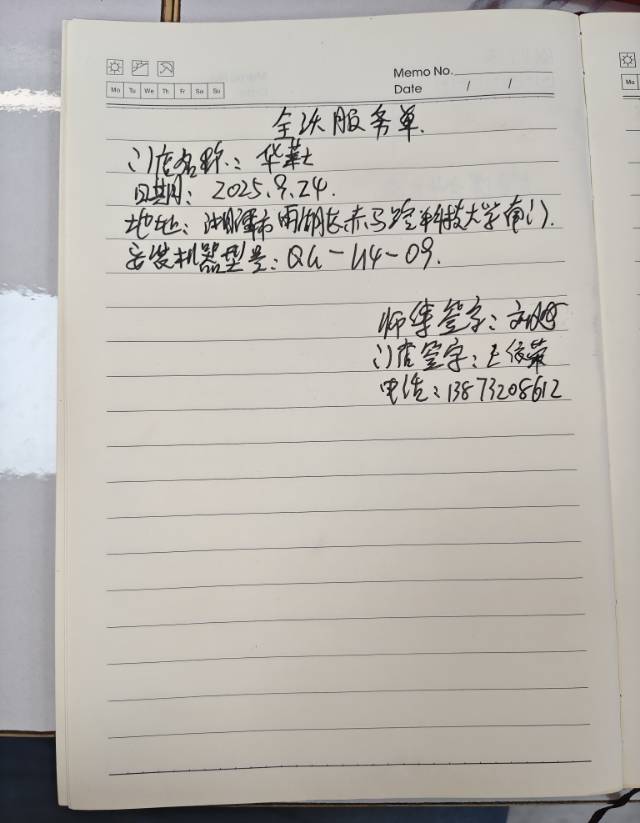 Memo No.
Mo Tu We Th Fr Sa Su
Date / /
全沃服务单.
门店名称: 华莱士
日期: 2025.9.24.
地址: 湘潭市雨湖区赤马路 科技大学南门.
安装机器型号: QG-U4-09.
师傅签字: 刘
门店签字: 王俊荣
电话: 13873208612
Mo